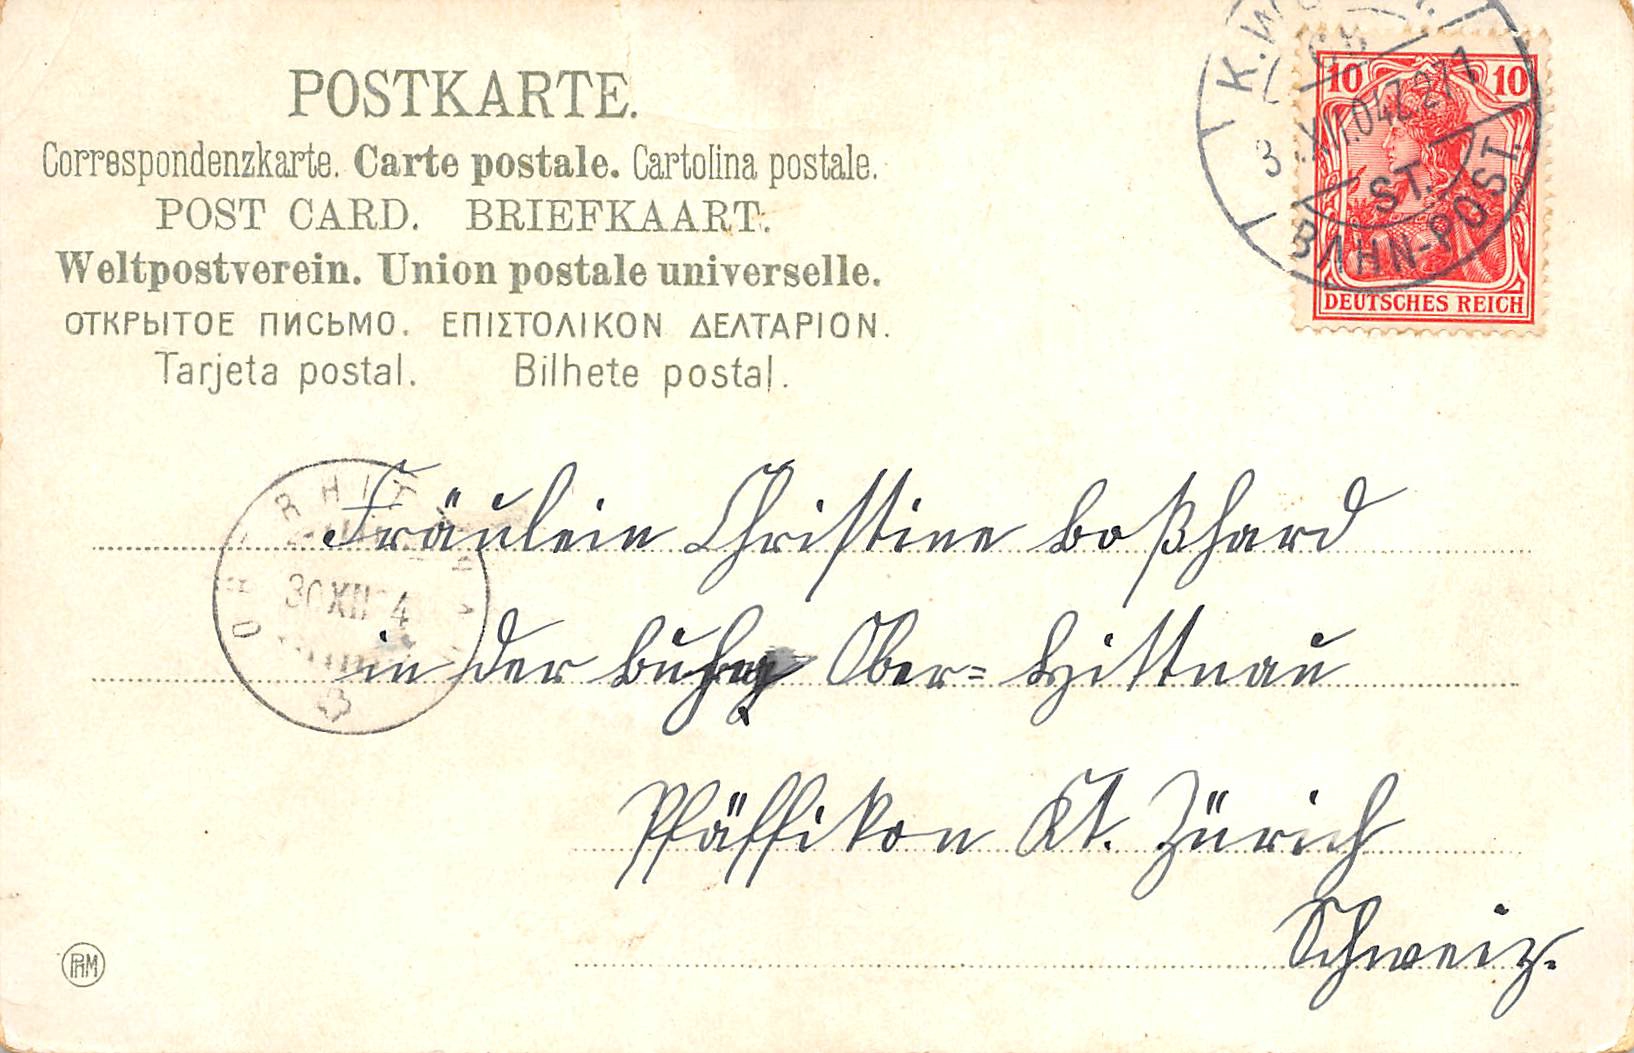 POSTKARTE.
Correspondenzkarte. Carte postale. Cartolina postale.
POST CARD. BRIEFKAART.
Weltpostverein. Union postale universelle.
ОТКРЫТОЕ ПИСЬМО. ΕΠΙΣΤΟΛΙΚΟΝ ΔΕΛΤΑΡΙΟΝ.
Tarjeta postal. Bilhete postal.
10 10
DEUTSCHES REICH
BAHN-POST. ST.
30 XII 4
Fräulein Christine Boßhard
in der Ober-Hittnau
Pfäffikon Kt. Zürich
Schweiz.
PHM